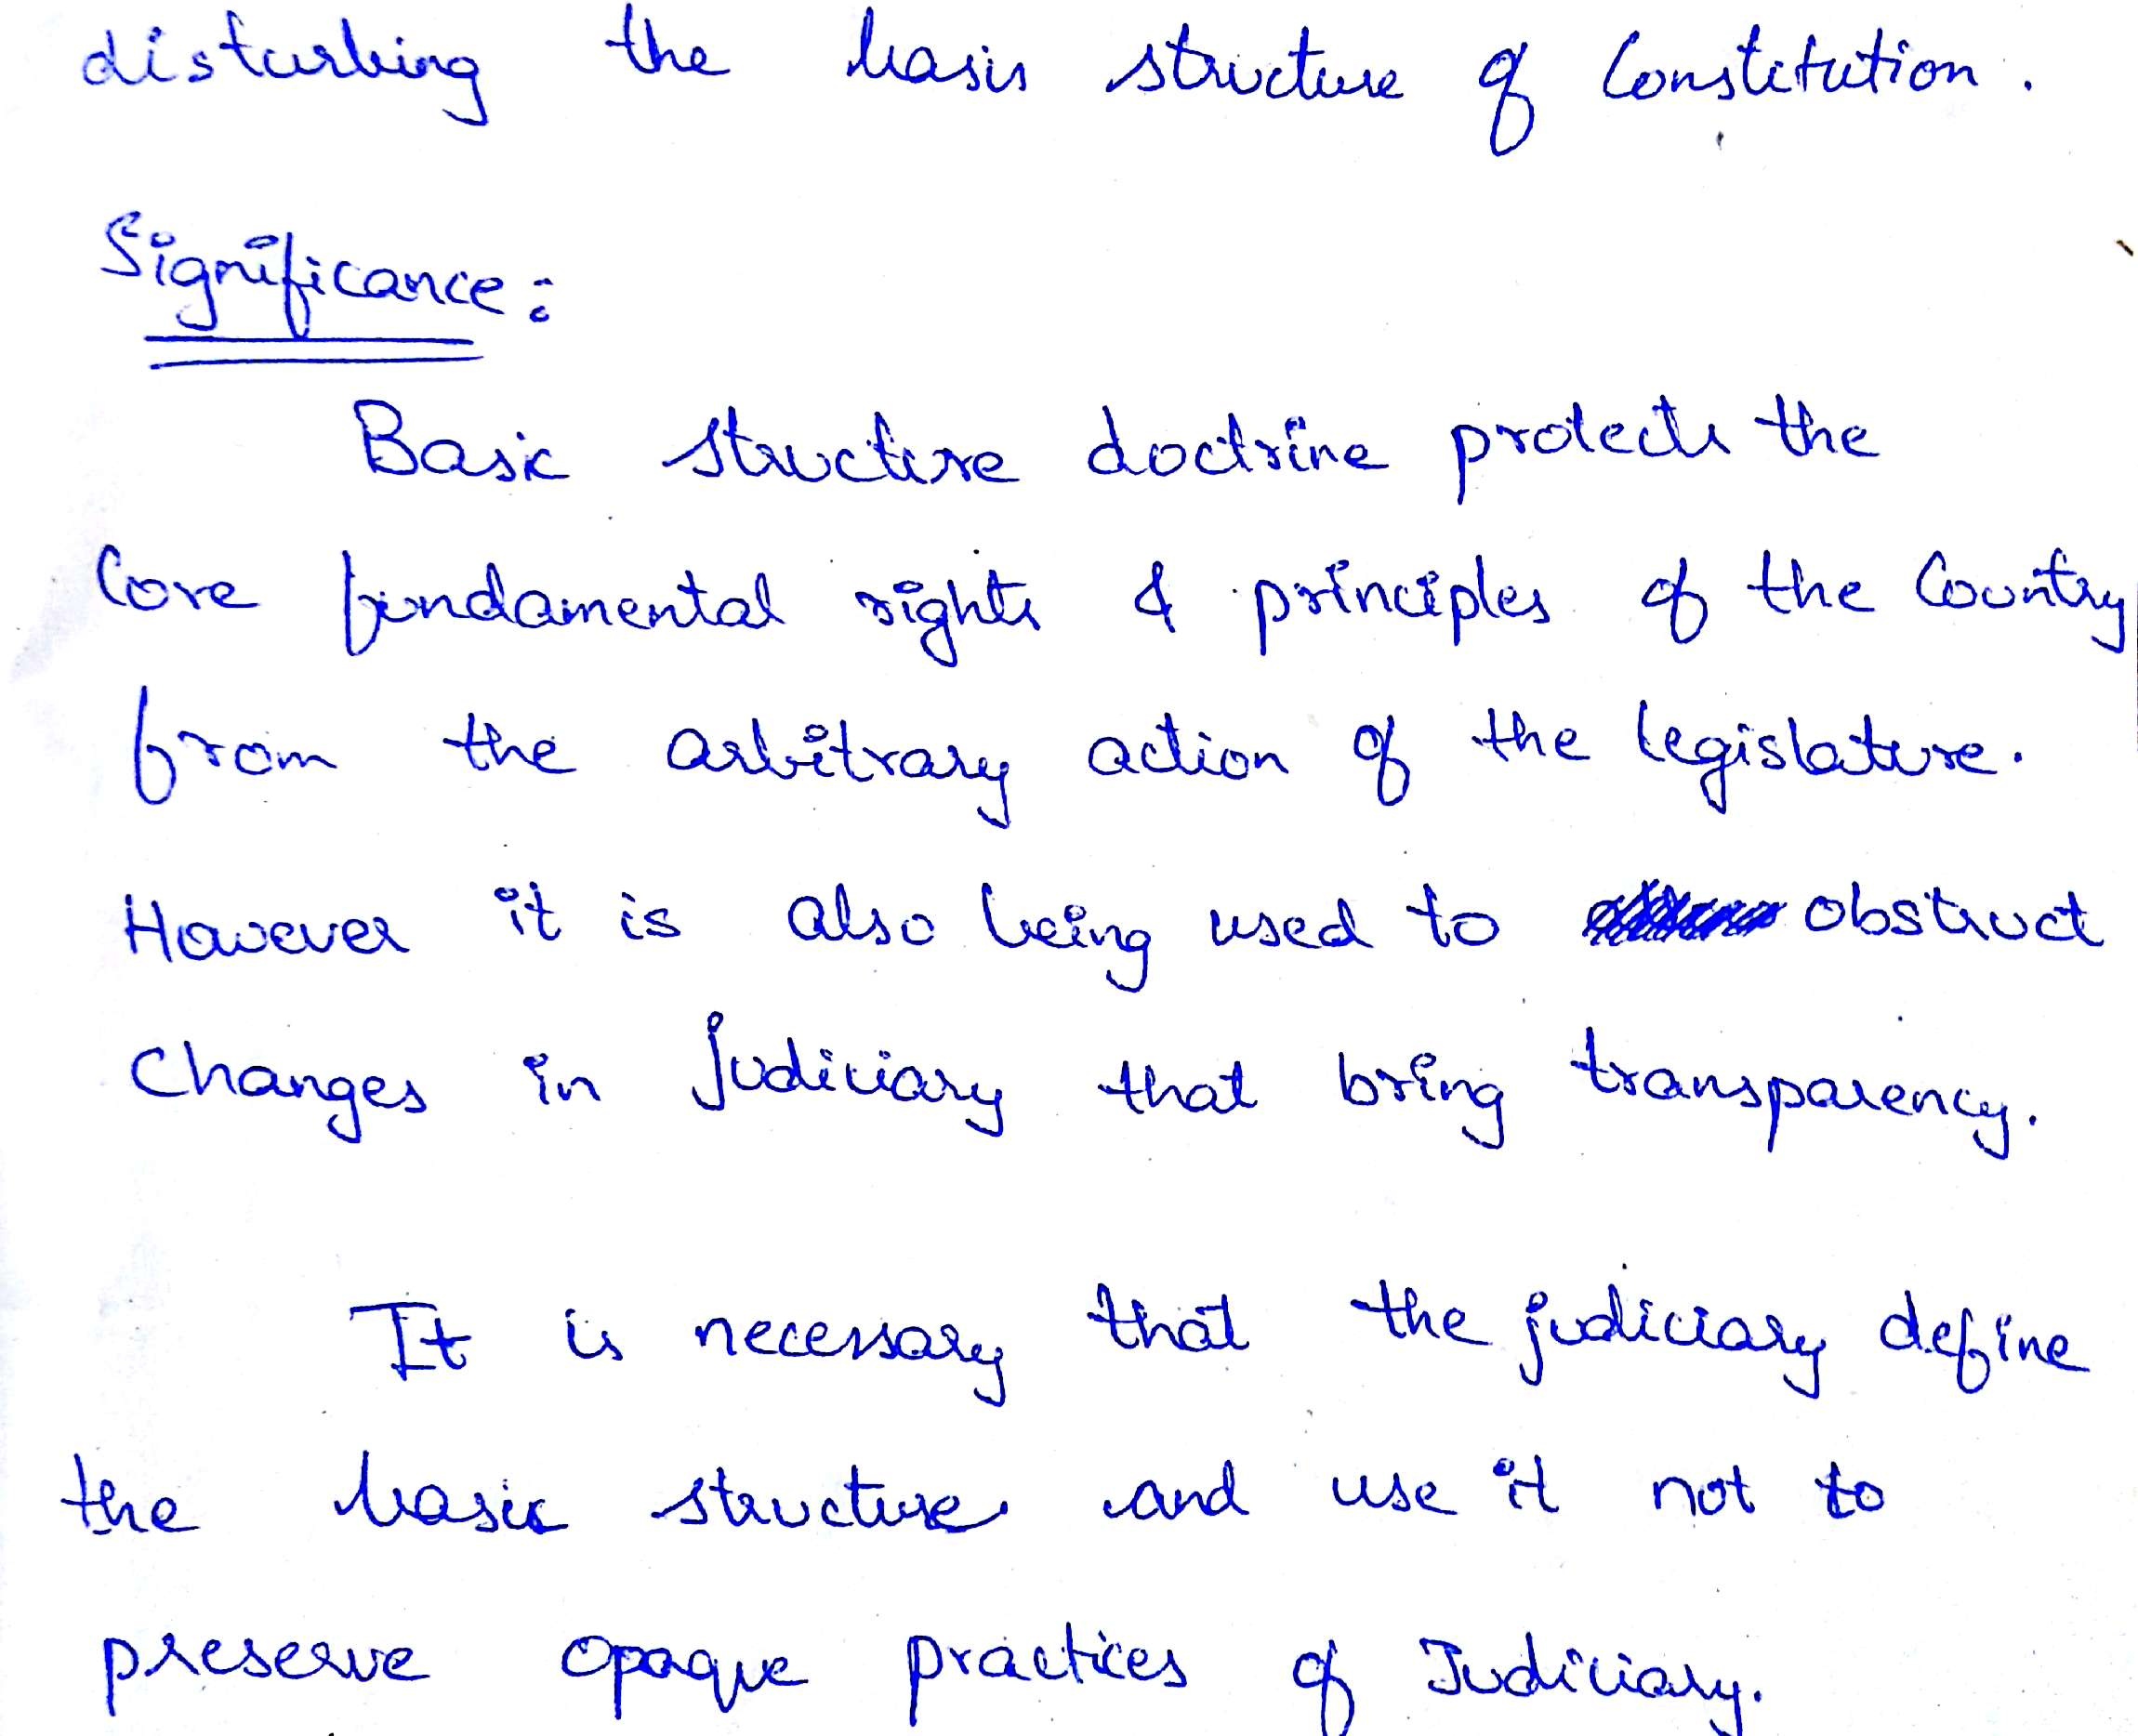 disturbing the basis structure of Constitution.
Significance:
Basic structure doctrine protects the
Core fundamental rights & principles of the Country
from the arbitrary action of the legislature.
However it is also being used to obstruct
Changes in Judiciary that bring transparency.
It is necessary that the judiciary define
the basic structure and use it not to
preserve opaque practices of Judiciary.